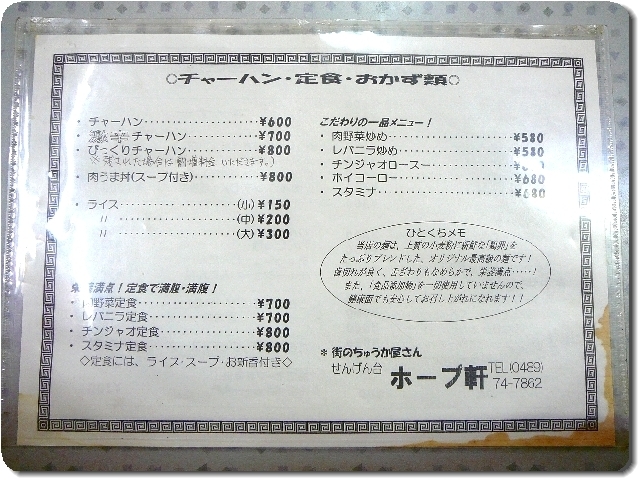 ○チャーハン・定食・おかず類○
・チャーハン ¥600
・激辛チャーハン ¥700
・びっくりチャーハン ¥800
※残された場合は割増料金いただきます。)
・肉うま丼(スープ付き) ¥800
・ライス (小)¥150
〃 (中)¥200
〃 (大)¥300
満点!定食で満腹・満腹!
野菜定食 ¥700
・レバニラ定食 ¥700
・チンジャオ定食 ¥800
・スタミナ定食 ¥800
◇定食には、ライス・スープ・お新香付き◇
こだわりの一品メニュー!
・肉野菜炒め ¥580
・レバニラ炒め ¥580
・チンジャオロース
・ホイコーロー ¥680
・スタミナ ¥680
ひとくちメモ
当店の麺は、上質の小麦粉に新鮮な「鶏卵」を
たっぷりブレンドした、オリジナル最高級の麺です!
歯切れが良く、こざわりもなめらかで、栄養満点……!
また、「食品添加物」を一切使用していませんので、
健康面でも安心してお召し上がれになれます!!
*街のちゅうか屋さん
せんげん台 ホープ軒 TEL(0489)
74-7862